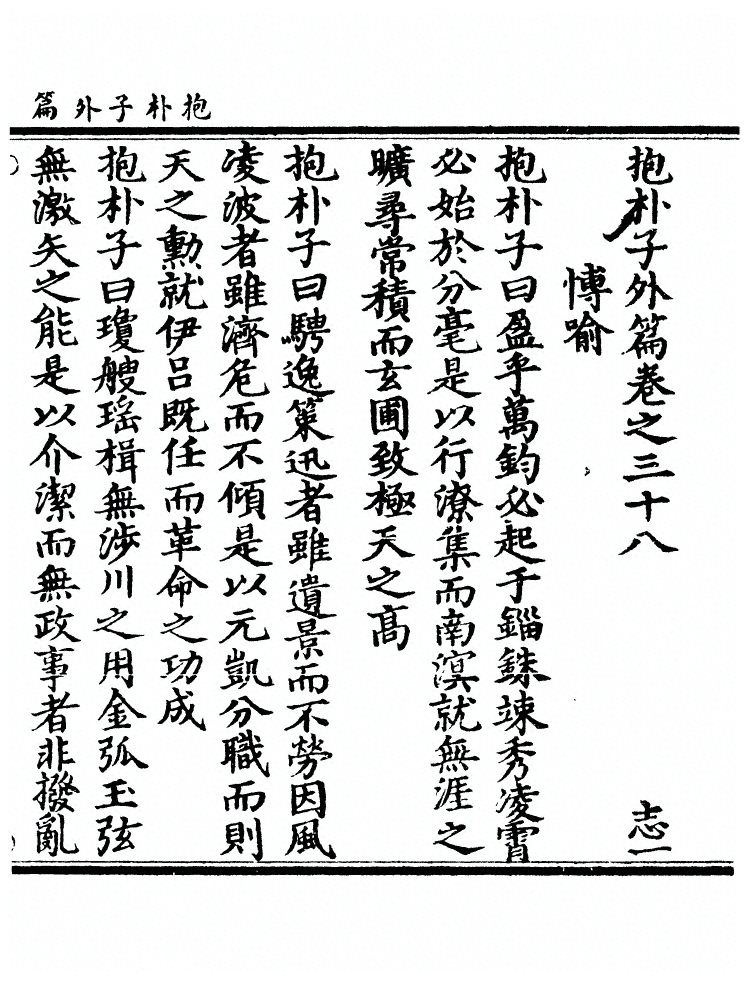 抱朴子外篇
抱朴子外篇卷之三十八 志一
愽喻
抱朴子曰盈乎萬鈞必起于錙銖竦秀凌霄
必始於分毫是以行潦集而南溟就無涯之
曠尋常積而玄圃致極天之高
抱朴子曰騁逸策迅者雖遺景而不勞因風
凌波者雖濟危而不傾是以元凱分職而則
天之勳就伊呂既任而革命之功成
抱朴子曰瓊艘瑶楫無涉川之用金弧玉弦
無激矢之能是以介潔而無政事者非撥亂